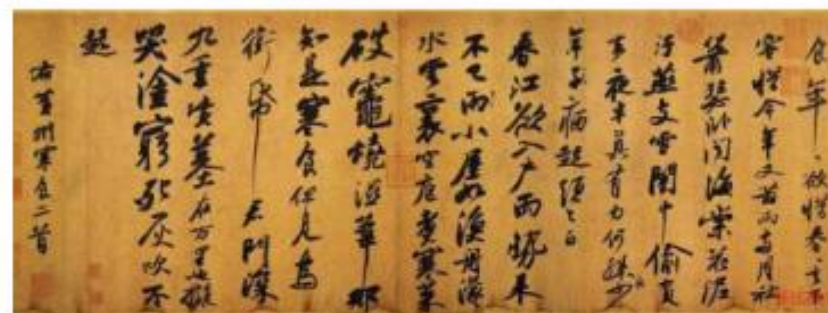 食年〻欲惜春〻去不
容惜今年又苦雨兩月秋
蕭瑟卧聞海棠花泥
汙燕支雪闇中偷負
去夜半真有力何殊少
年子病起須已白
春江欲入戶雨勢來
不已雨小屋如漁舟濛〻
水雲裏空庖煮寒菜
破竈燒濕葦那
知是寒食但見烏
銜帋君門深
九重墳墓在万里也擬
哭塗窮死灰吹不
起
右黃州寒食二首